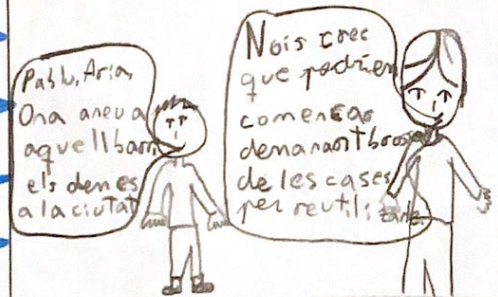 Pablo, Aria,
Ona aneu a
aquell barri
els demes
a la ciutat
Nois crec
que podrien
començar
demanant brossa
de les cases
per reutili
zarla